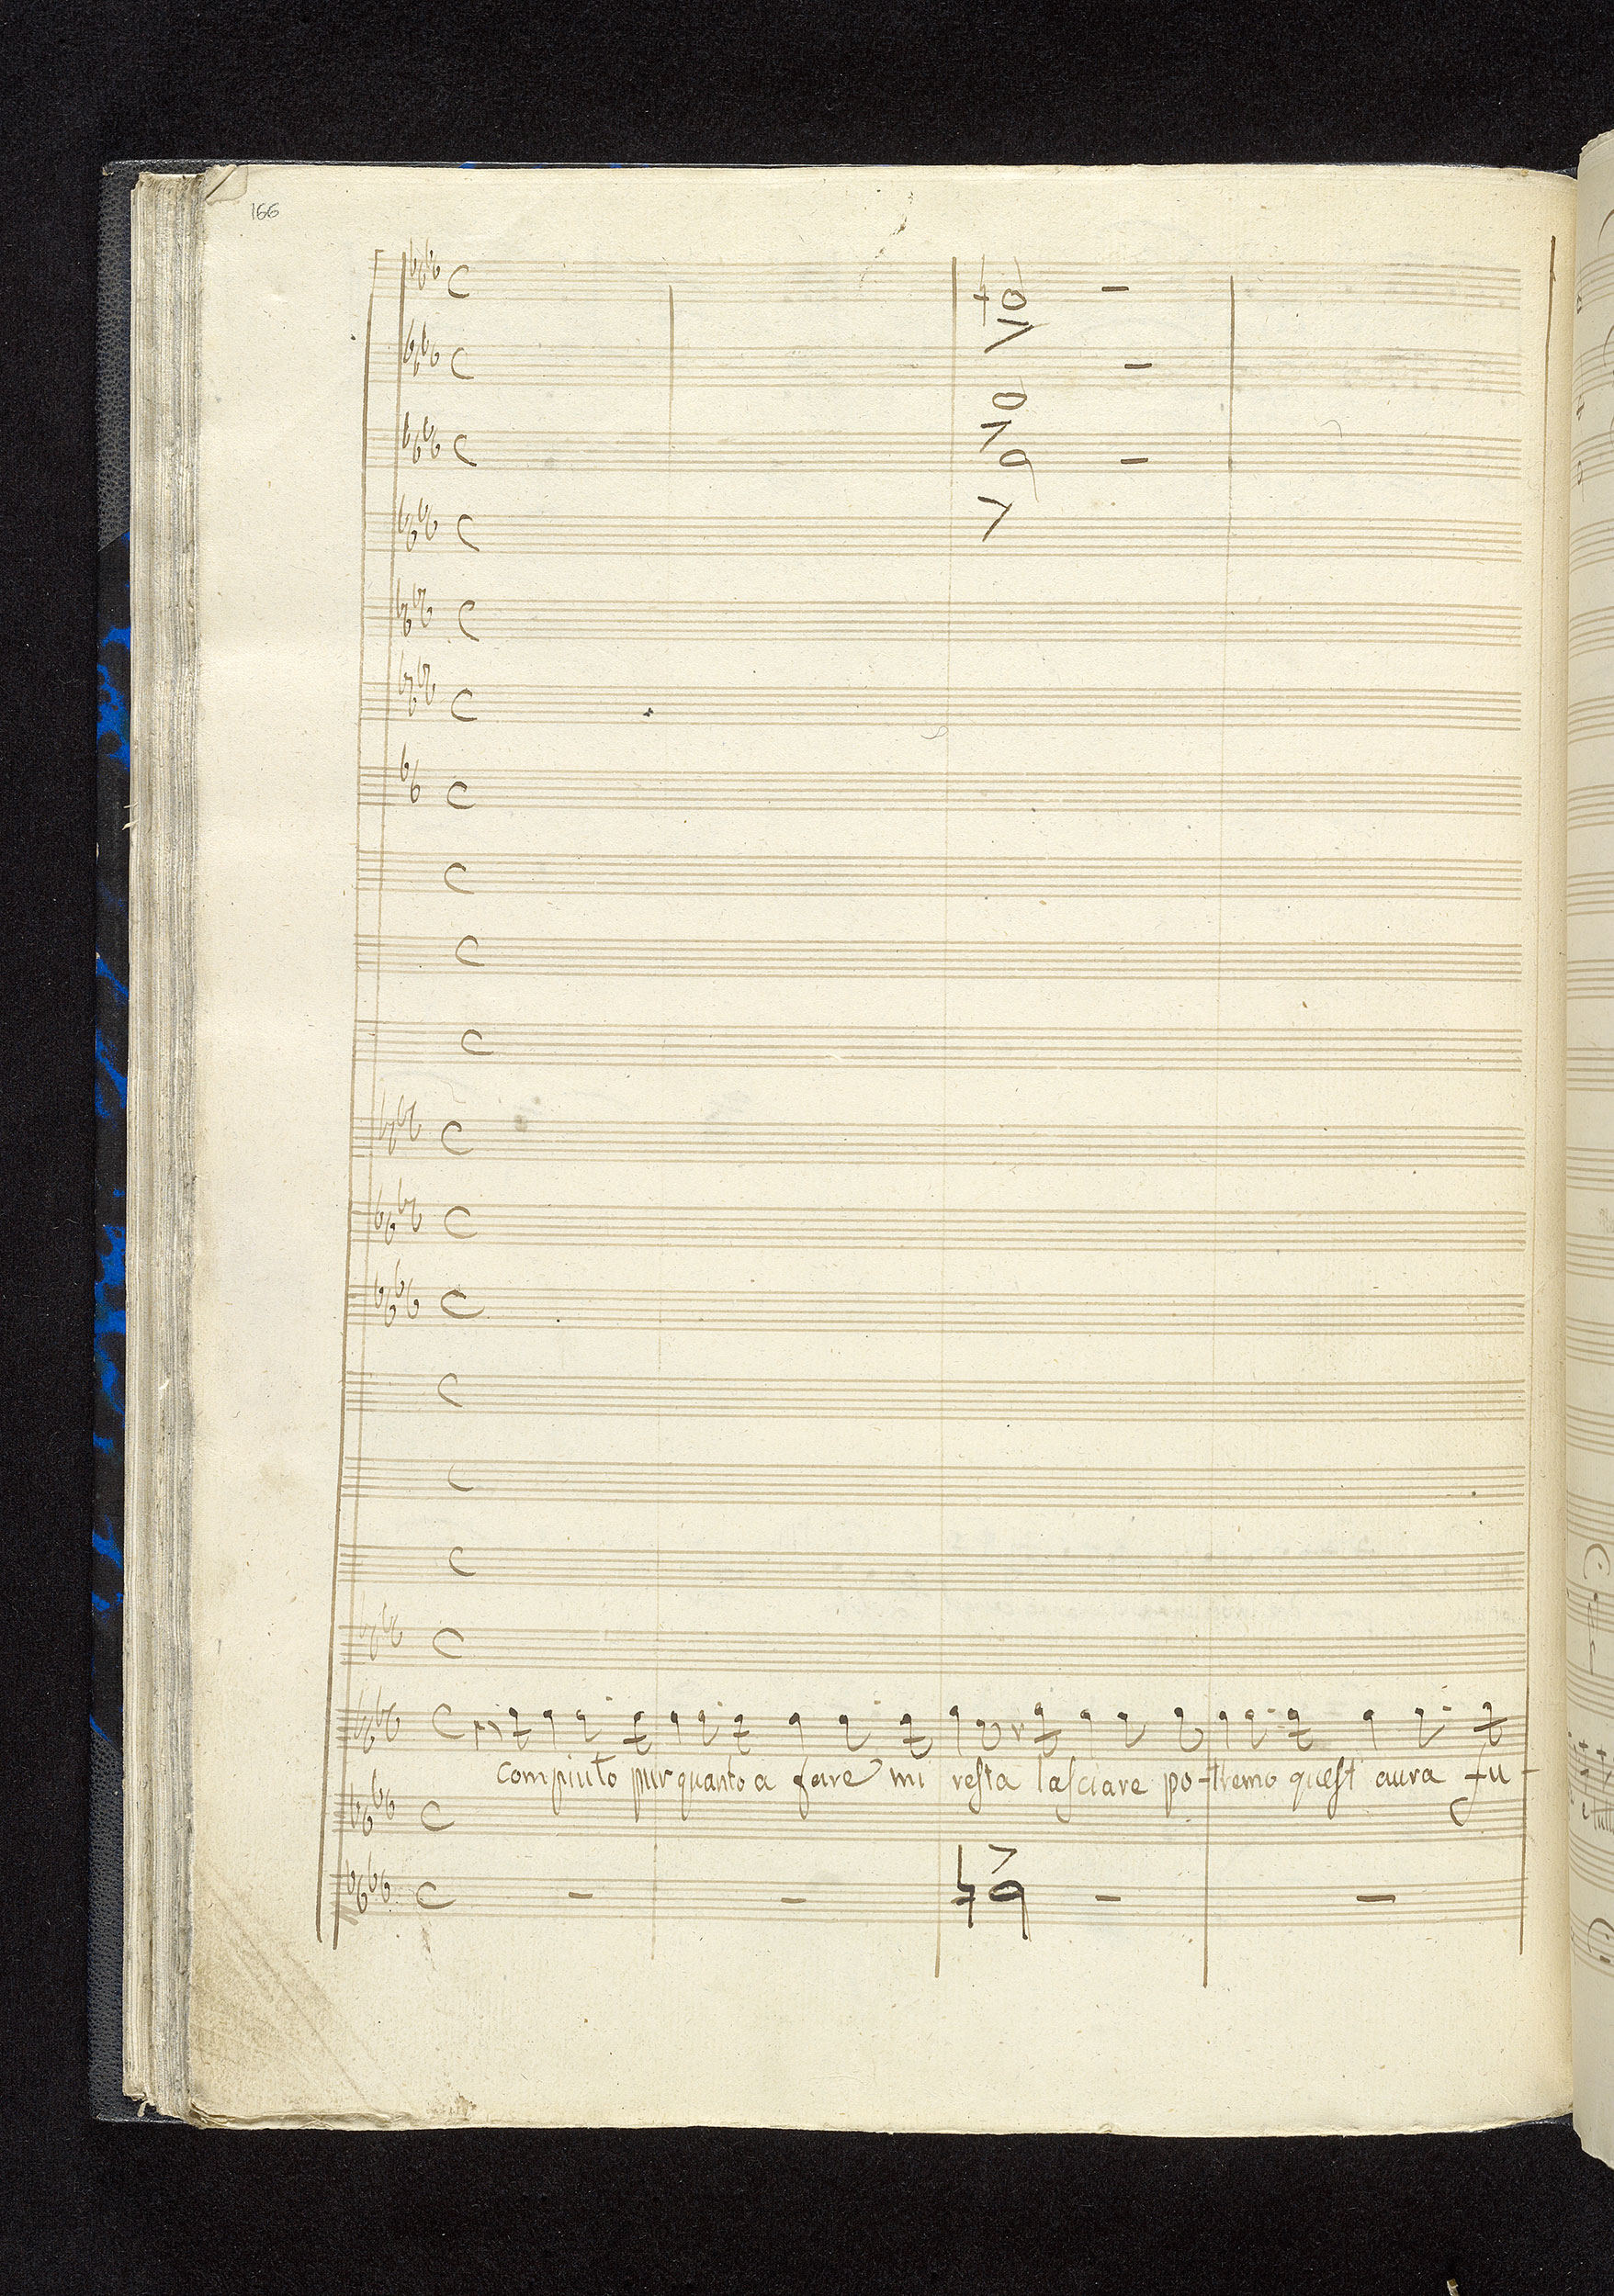 166
compiuto pur quanto a fare mi resta lasciare po-tremo quest aura fu-